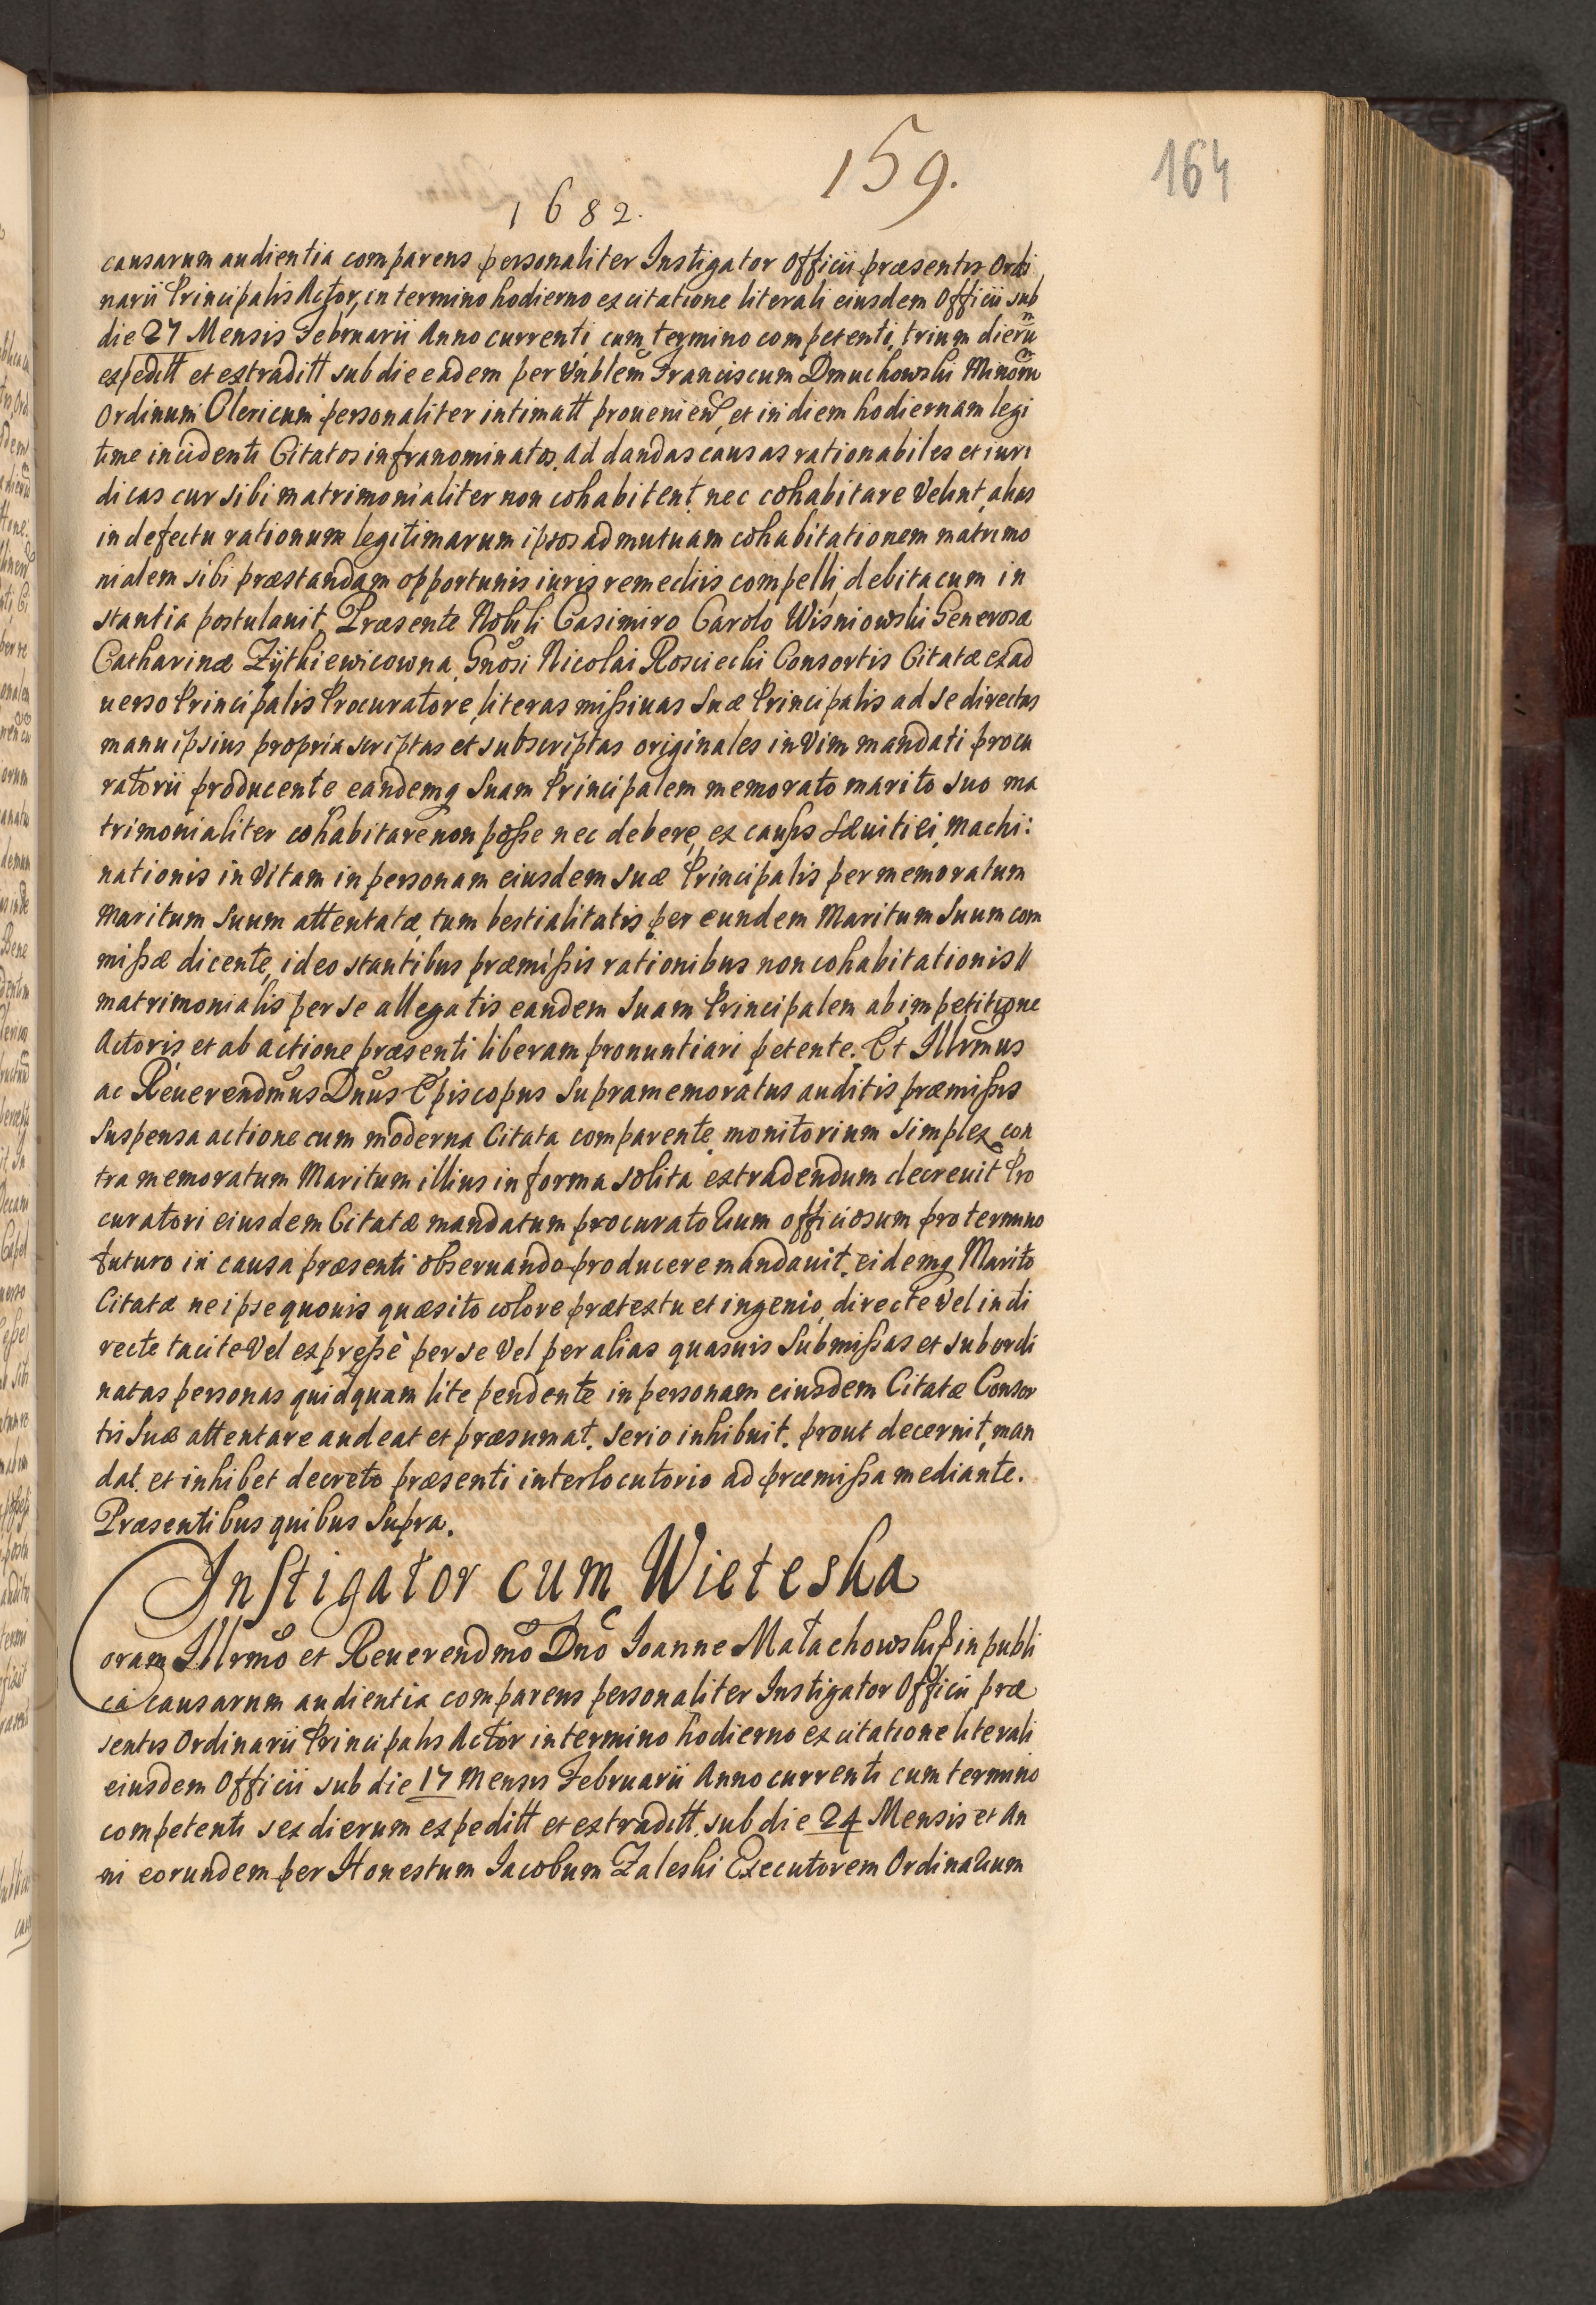 159.
164
1682.
causarum audientia comparens personaliter Instigator Officii præsentis Ordi
narii Principalis Actor, in termino hodierno ex citatione literali eiusdem Officii sub
die 27 Mensis Februarii Anno currenti cum termino competenti trium dierū
expeditt et extraditt sub die eadem per Vnblem Franciscum Dmuchowski Minorū
Ordinum Clericum personaliter intimatt prouenien, et in diem hodiernam legi
time incidenti Citatos infranominatos, ad dandas causas rationabiles et iuri
dicas cur sibi matrimonialiter non cohabitent, nec cohabitare Velint, alias
in defectu rationum legitimarum ipsos ad mutuam cohabitationem matrimo
nialem sibi præstandam opportunis iuris remediis compelli, debita cum in
stantia postulauit, Præsente Nobili Casimiro Carolo Wisniowski Generosæ
Catharinæ Zÿtkiewicowna, Gnōsi Nicolai Rosciecki Consortis Citatæ ex ad
uerso Principalis Procuratore, literas missiuas Suæ Principalis ad se directas
manu ipsius propria scriptas et subscriptas originales in Vim mandati procu
ratorii producente eandemq Suam Principalem memorato marito suo ma
trimonialiter cohabitare non posse nec debere, ex causis Sæuitiei, Machi:
nationis in Vitam in personam eiusdem suæ Principalis per memoratum
Maritum Suum attentatæ, tum bestialitatis per eundem Maritum Suum com
missæ dicente, ideo stantibus præmissis rationibus non cohabitationis //
matrimonialis per se allegatis eandem Suam Principalem ab impetitione
Actoris et ab actione præsenti liberam pronuntiari petente. Et Illrmūs
ac Reuerendmūs Dnūs Episcopus Supramemoratus auditis præmissis
Suspensa actione cum moderna Citata comparente, monitorium simplex con
tra memoratum Maritum illius in forma solita extradendum decreuit Pro
curatori eiusdem Citatæ mandatum procuratorium officiosum pro termino
futuro in causa præsenti obseruando producere mandauit, eidemq Marito
Citatæ ne ipse quouis quæsito colore prætextu et ingenio, directe Vel indi
recte tacite Vel expressè per se Vel per alias quasuis Submissas et subordi
natas personas quidquam lite pendente in personam eiusdem Citatæ Consor
tis Suæ attentare audeat et præsumat, serio inhibuit, prout decernit, man
dat, et inhibet decreto præsenti interlocutorio ad præmissa mediante.
Præsentibus quibus Supra.
Instigator cum Wieteska
Coram Illrmō et Reuerendmō Dnō Ioanne Małachowski in publi
ca causarum audientia comparens personaliter Instigator Officii præ
sentis Ordinarii Principalis Actor in termino hodierno ex citatione literali
eiusdem Officii sub die 17 Mensis Februarii Anno currenti cum termino
competenti sex dierum expeditt et extraditt, sub die 24 Mensis et An
ni eorundem per Honestum Iacobum Zaleski Executorem Ordinarium